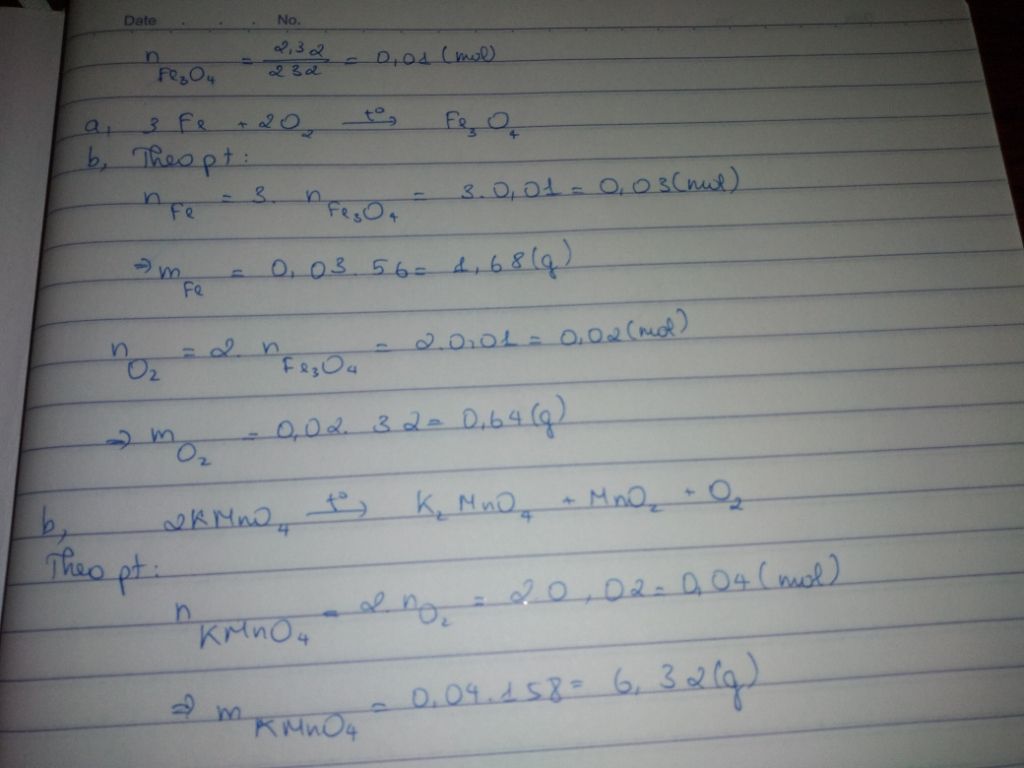 Date . . . No.
n Fe₃O₄ = 2,32/232 = 0,01 (mol)
a, 3 Fe + 2O₂ t°→ Fe₃O₄
b, Theo pt:
n Fe = 3. n Fe₃O₄ = 3.0,01 = 0,03 (mol)
⇒ m Fe = 0,03.56 = 1,68 (g)
n O₂ = 2. n Fe₃O₄ = 2.0,01 = 0,02 (mol)
⇒ m O₂ = 0,02. 32 = 0,64 (g)
b, 2KMnO₄ t°→ K₂MnO₄ + MnO₂ + O₂
Theo pt:
n KMnO₄ = 2. n O₂ = 2.0,02 = 0,04 (mol)
⇒ m KMnO₄ = 0,04.158 = 6,32 (g)